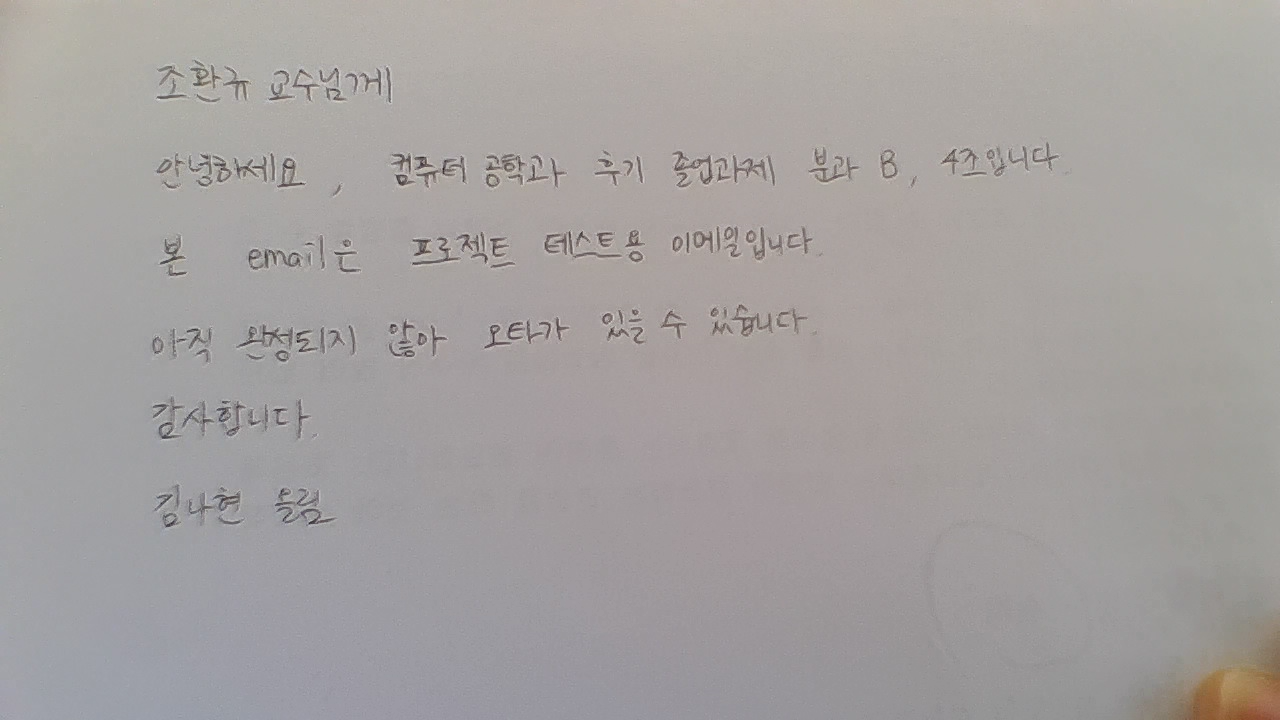 조환규 교수님께
안녕하세요, 컴퓨터공학과 후기 졸업과제 분과 B, 4조입니다.
본 email은 프로젝트 테스트용 이메일입니다.
아직 완성되지 않아 오타가 있을 수 있습니다.
감사합니다.
김나현 올림